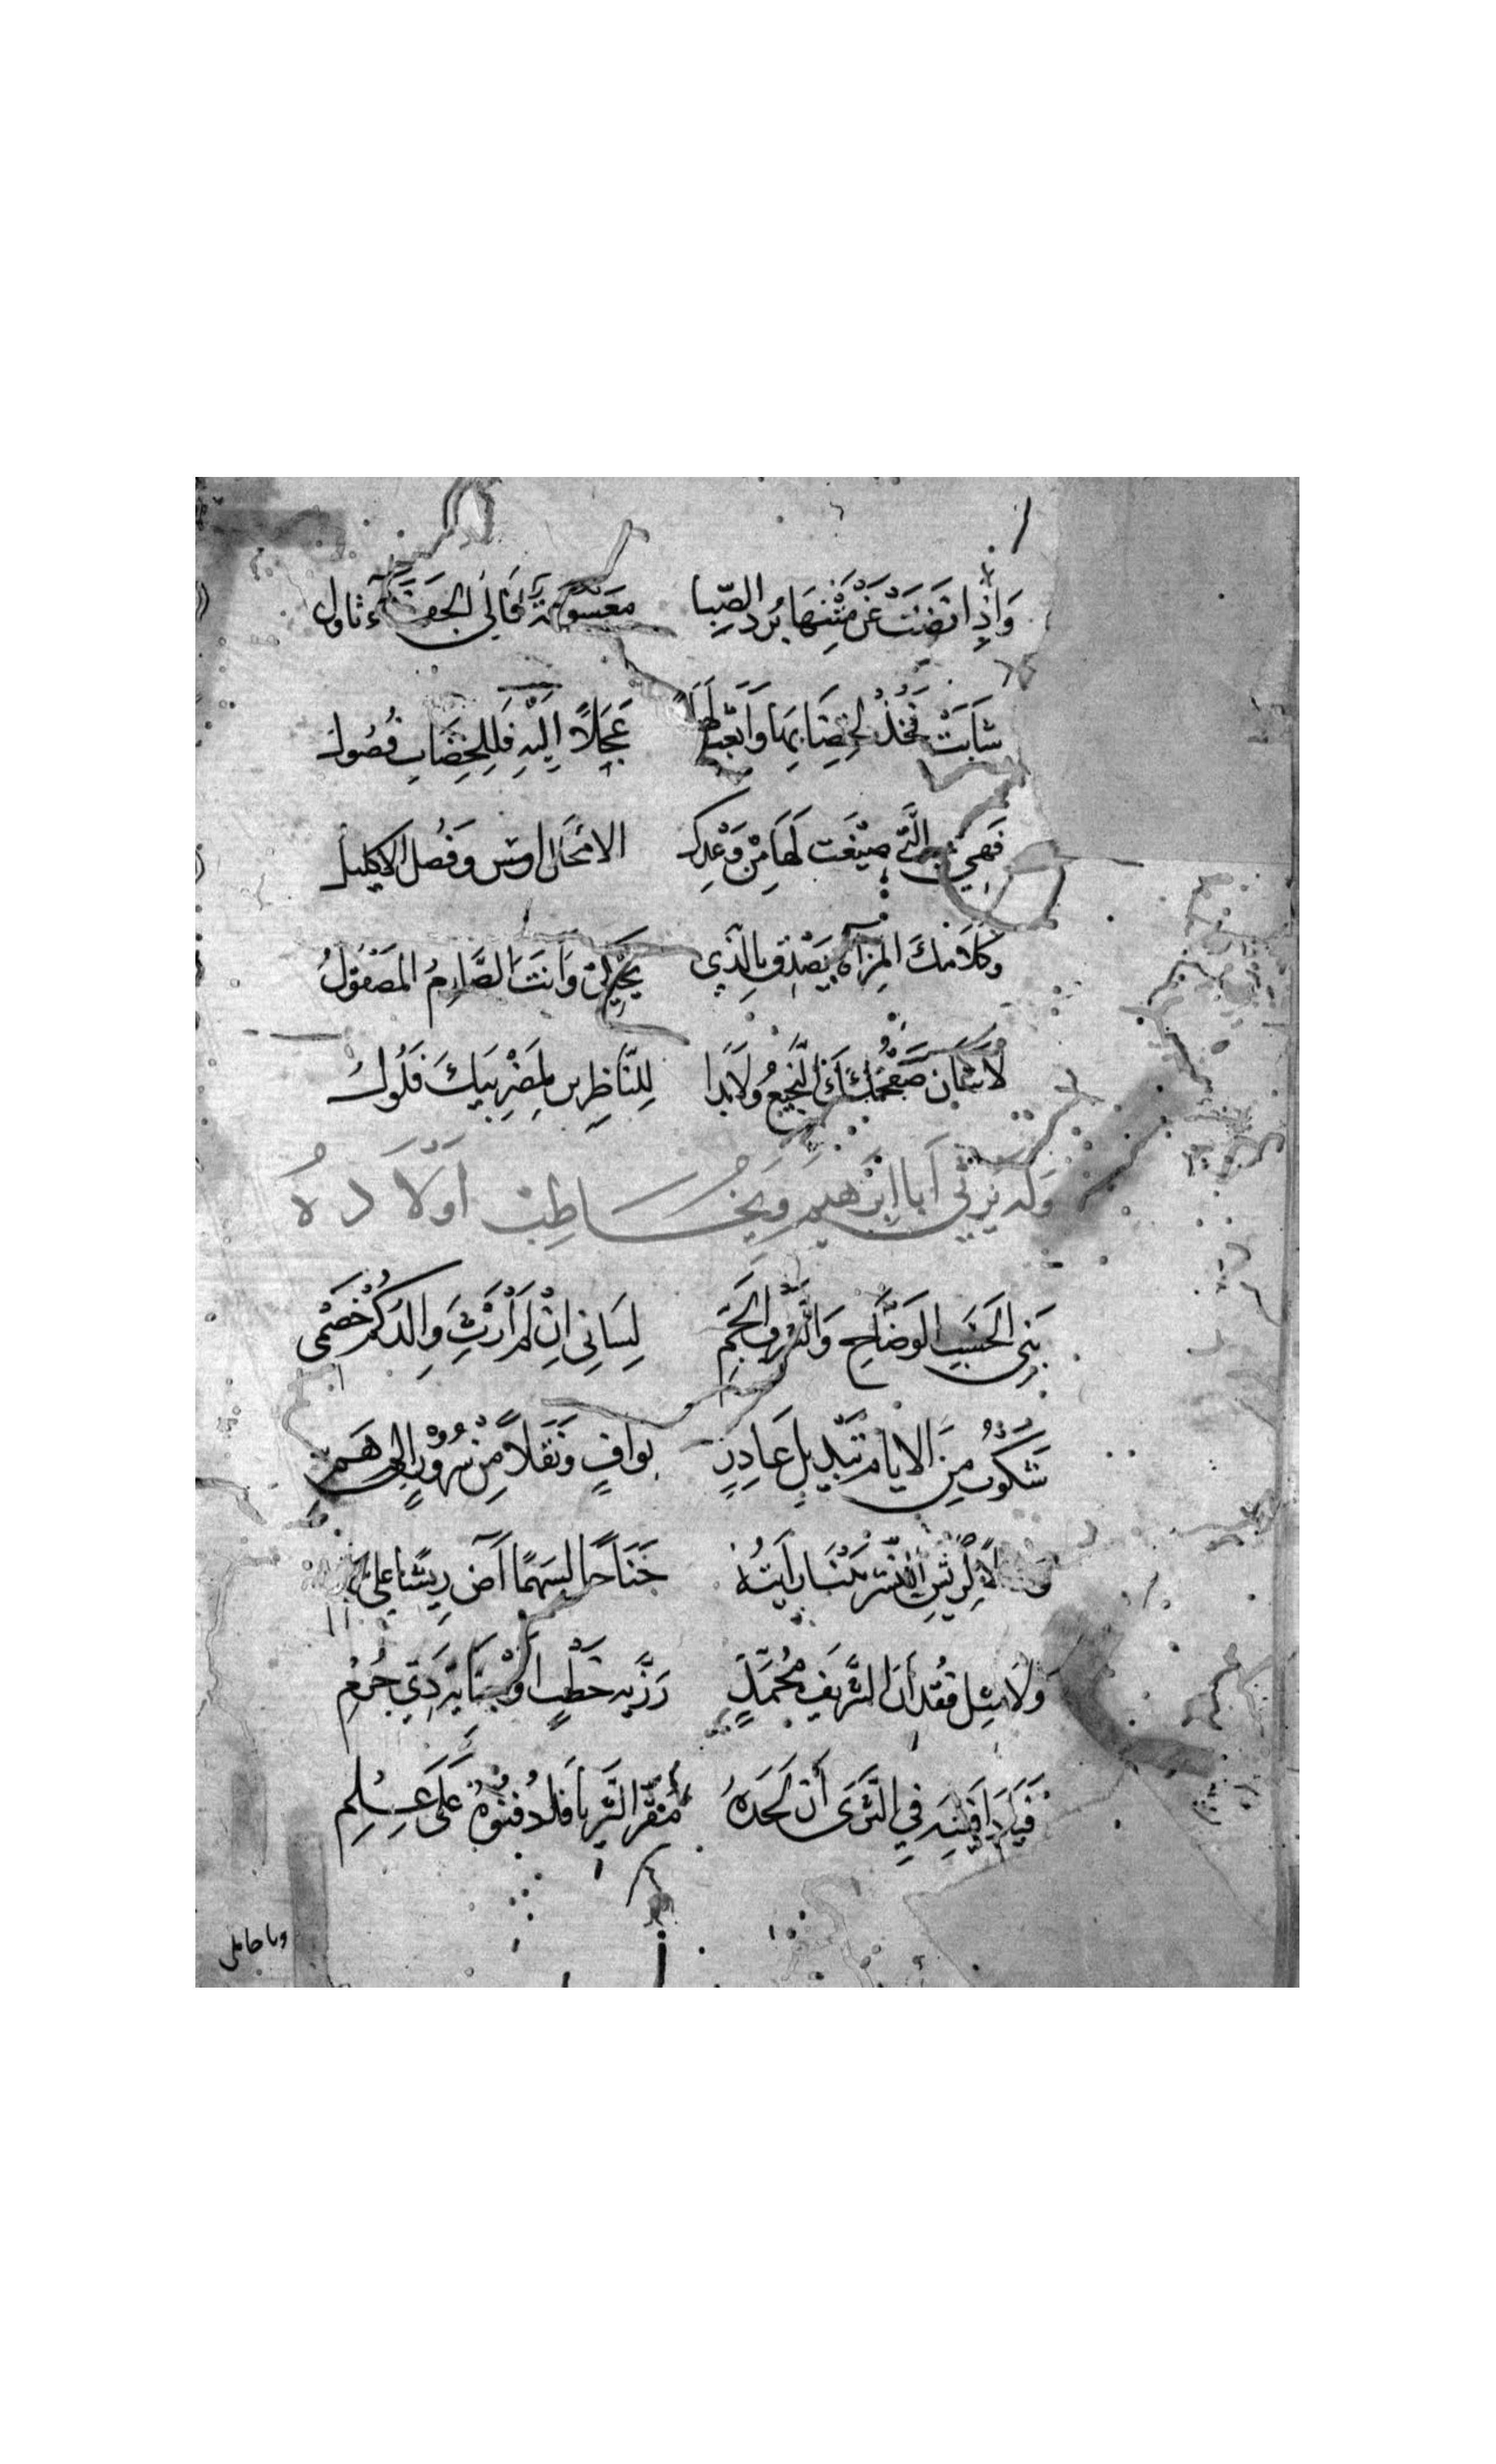 وَاذِا نضَتْ عَنْ مَتْنِهَا بُردَ الصِّبا معسوۤلة فَالى الجفَآء تؤول
شَابَتْ فخُذْ لخِضَابِهَا وَابعَث لهَا عَجَلًا اِلَيْهِ فَلِلخِضَابِ فُصُول
فَهِيَ الَّتي صيْغَت لَهَا مِنْ وَعْدِكَ الاَمْحَال اوس وَفُصل الاكليل
وَكلَامكَ المِرْآة يَصْدق بِالَّذِي يُجْزِئ وَانتَ الصَّارِمُ المَصْقُوْلُ
لَا شَان صَفْحَتكَ النَّجِيْعُ وَلَا بَدا لِلنَّاظِرِين لِمَضْرِبَيكَ فَلُول
وَله يَرْثي اَبا ابْرَهيم وَيخُاطِبُ اَوْلَادهُ
بَني الحَسَبِ الوَضَّاحِ وَالشَّرفِ الجَمِّ لِسَاني انْ لَمْ اَرْثِ وَالِدَكُمْ خَصْمى
شَكَوْتُ مِنَ الايام تَبْدِيلَ غَادِرٍ بوافٍ وَنَقلاً مِنْ سُرُوْرٍ الى هَمِ
وَحَالًا كَرِيْشِ النَّسْر بَيْنَا رَايتُهُ جَنَاحًا لسَهمٍ اَضَ رِيشًا عَلى سَهم
وَلَا مِثل فقْدَان الشَّرِيفِ مُحمَّدٍ رَزِّية خَطْبٍ اوْ جِنَاية ذي جُرْمِ
فيَا دَافِنِيه فِي الثَّرَى أنَ لَحَدهُ مَقَرّ الثريا فَادْفنُوهُ عَلَى عِلمِ
ويا حاملي